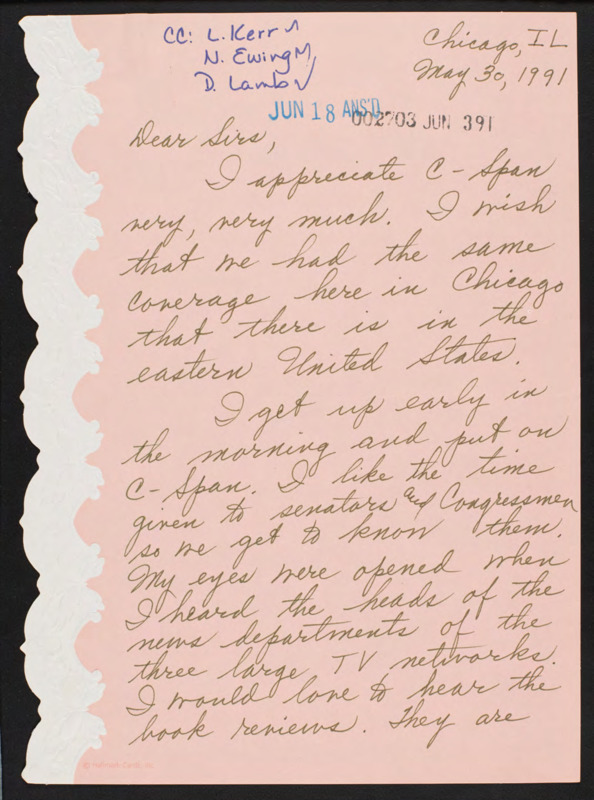 CC: L. Kerr
N. Ewing
D. Lamb
Chicago, IL
May 30, 1991
JUN 18 ANS'D
002703 JUN 391
Dear Sirs,
I appreciate C-Span
very, very much. I wish
that we had the same
coverage here in Chicago
that there is in the
eastern United States.
I get up early in
the morning and put on
C-Span. I like the time
given to senators and Congressmen
so we get to know them.
My eyes were opened when
I heard the heads of the
news departments of the
three large TV networks.
I would love to hear the
book reviews. They are
© Hallmark Cards, Inc.